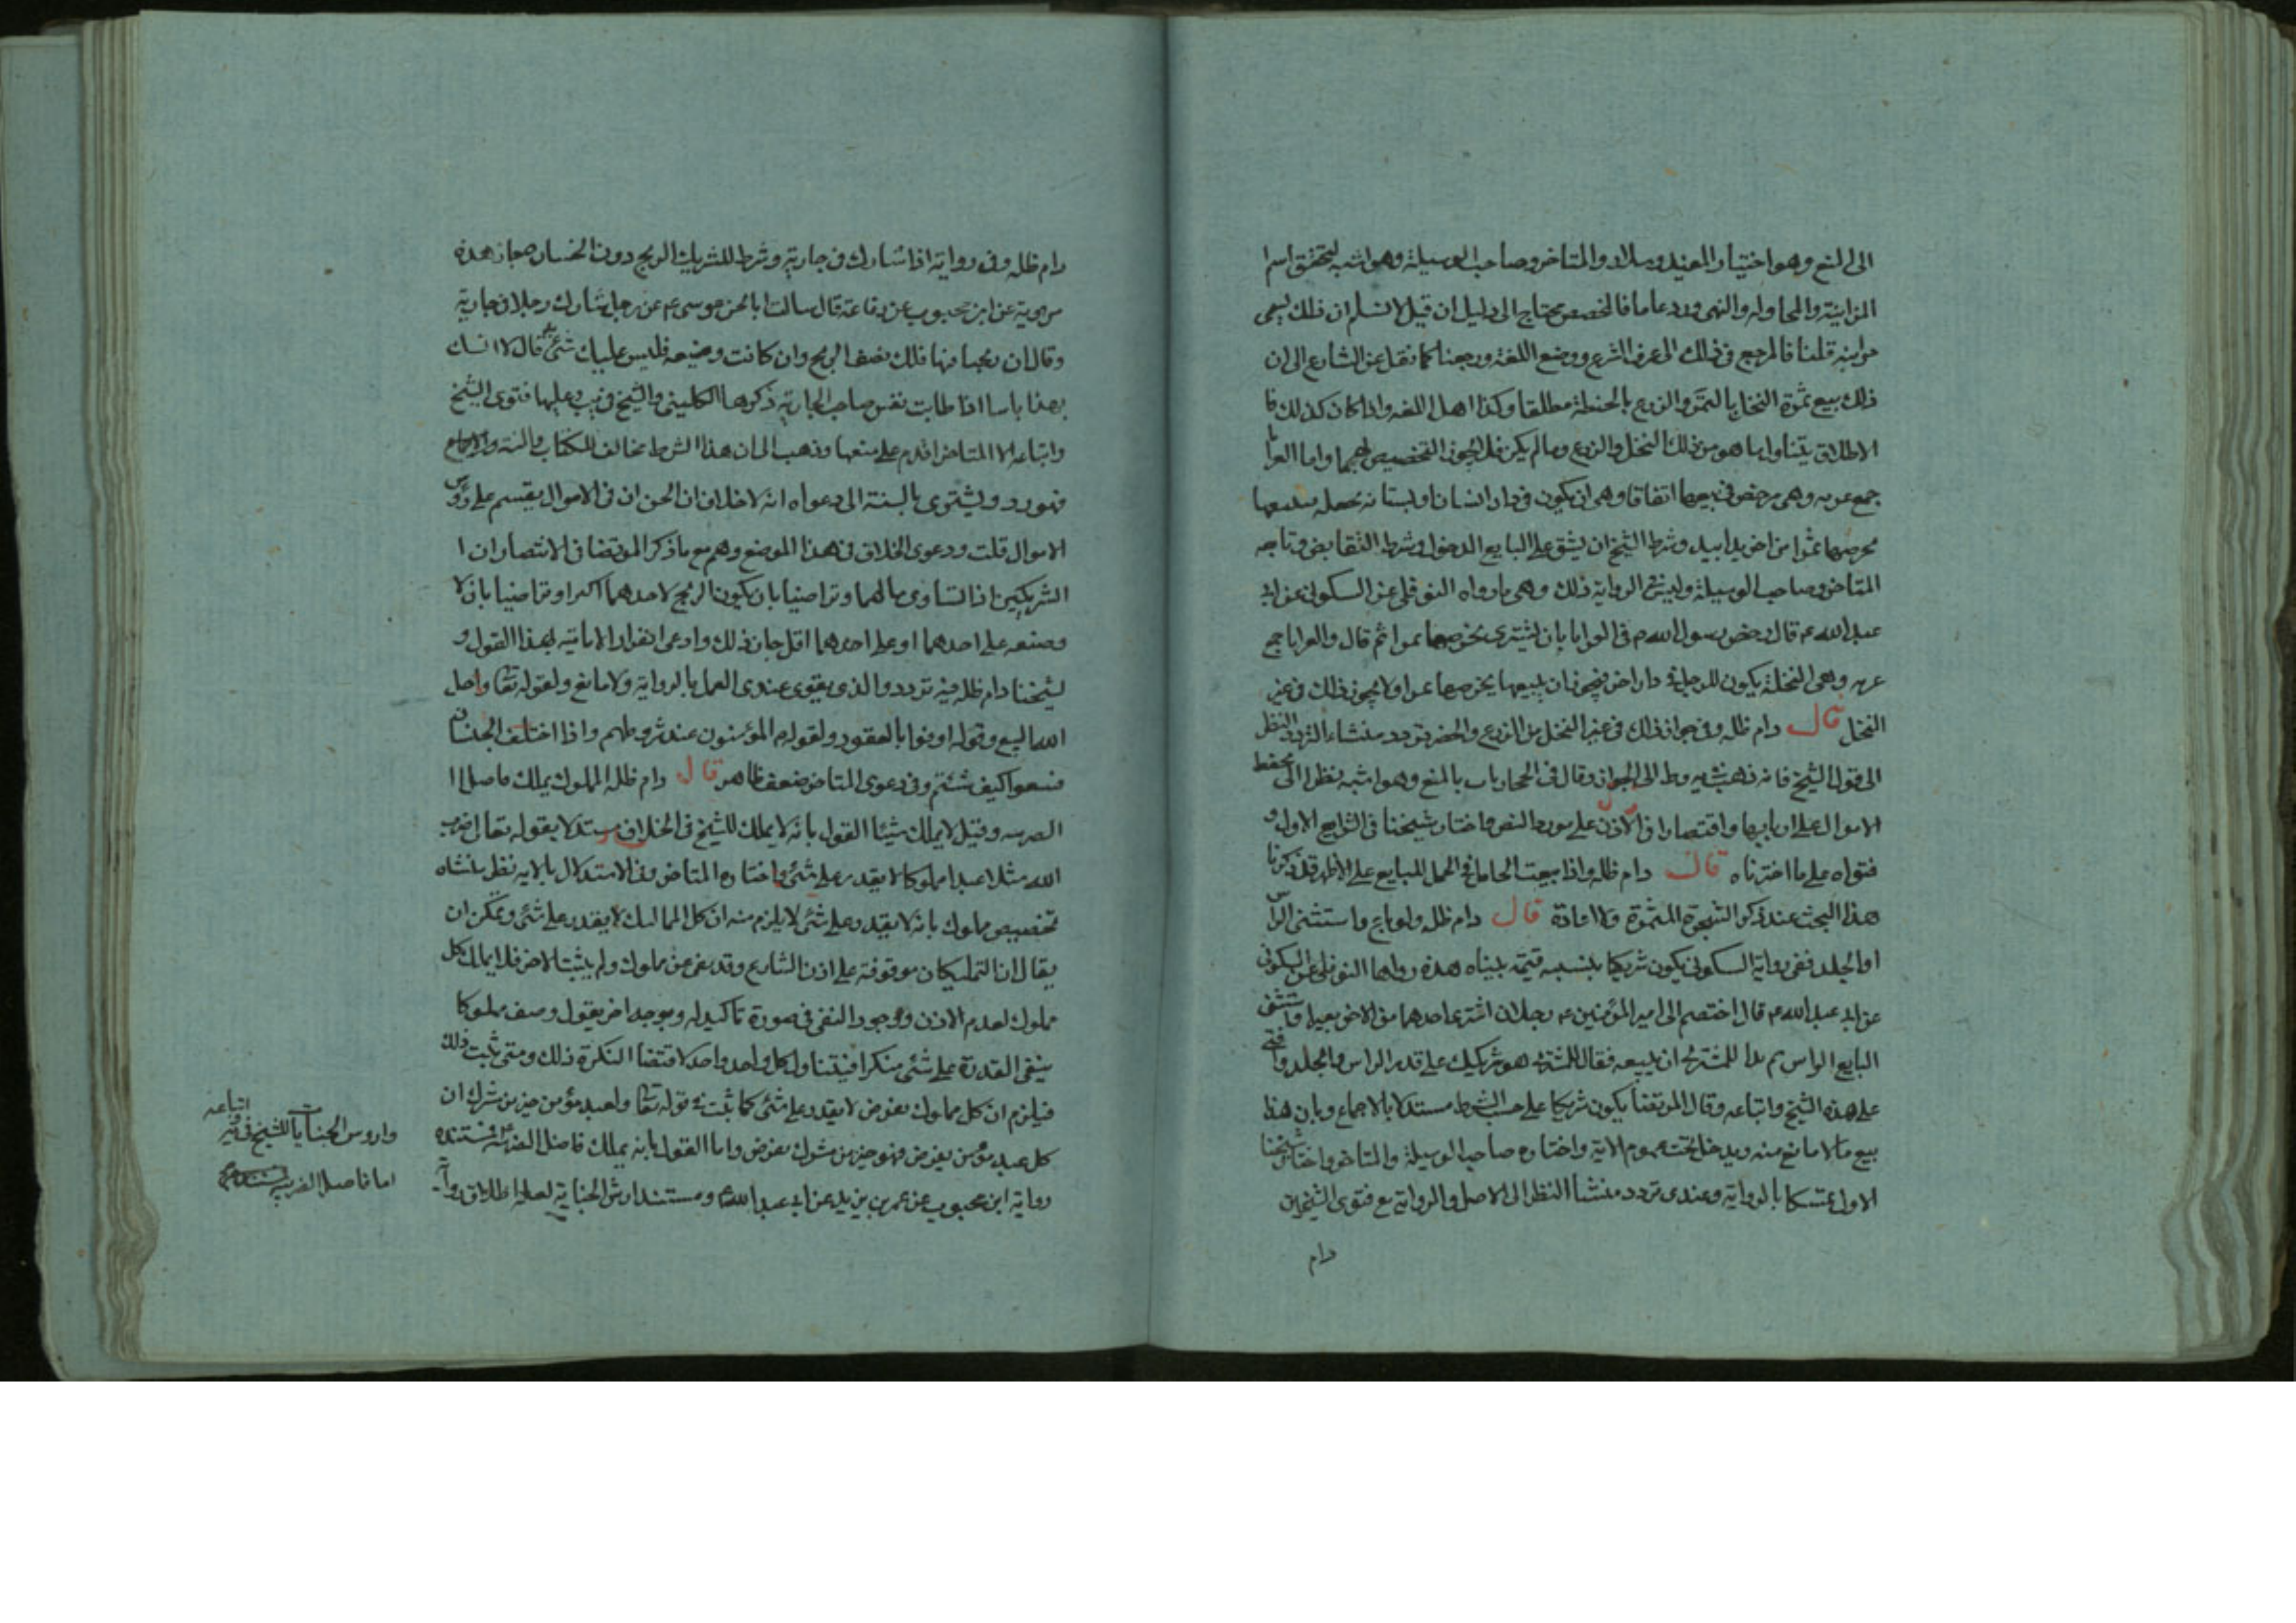 الى المنع وهو اختيار المفيد وسلار والمتاخر وصاحب الوسيلة وهو اشبه لتحقق اسم
المزابنة والمحاقله والنهى ورد عاما فالمخصص يحتاج الى دليل ان قيل لا نسلم ان ذلك يسمى
مزابنه قلنا فالمرجع فى ذلك الى عرف الشرع ووضع اللغة ورجعنا كما نقل عن الشارع الى ان
ذلك بيع ثمرة النخل بالتمر والزرع بالحنطة مطلقا وكذا اهل اللغه واذا كان كذلك فا
الاطلاق يتناول ما هو من ذلك النخل والزرع وما لم يكن فلا يجوز التخصيص لهما واما العرايا
جمع عريه وهى مرخص فى بيعها اتفاقا وهى ان يكون فى دار انسان او بستانه نخله
بخرصها تمرا من اخر يدا بيد وشرط الشيخ ان يشق على البايع الدخول وشرط التقابض وتابعه
المتاخر وصاحب الوسيلة وليس فى الرواية ذلك وهى ما رواه النوفلى عن السكونى عن ابى
عبد الله ع قال رخص رسول الله ص فى العرايا بان يشترى بخرصها تمرا ثم قال والعرايا جمع
عريه وهى النخلة يكون للرجل فى دار اخر فيجوز ان يبيعها بخرصها تمرا ولا يجوز ذلك فى غير
النخل قال دام ظله وفى جواز ذلك فى غير النخل من الزرع والخضر تردد منشاء التردد النظر
الى قول الشيخ فانه ذهب فى يه وط الى الجواز وقال فى الحجار باب بالمنع وهو اشبه نظرا الى تحفظ
الاموال على اربابها واقتصارا فى الاذن على مورد النص واختار شيخنا فى الشرايع الاول و
فتواه على ما اخترناه قال دام ظله واذا بيعت الحامل فالحمل للبايع على الاظهر قد ذكرنا
هذا البحث عند ذكر الشجرة المثمرة ولا اعادة قال دام ظله ولو باع واستثنى الراس
او الجلد ففى رواية السكونى يكون شريكا بنسبه قيمة ثنياه هذه رواها النوفلى عن السكونى
عن ابى عبد الله ع قال اختصم الى امير المؤمنين ع رجلان اشترى احدهما من الاخر بعيرا واستثنى
البايع الراس ثم بدا للمشترى ان يبيعه فقال للمشترى هو شريكك على قدر الراس والجلد وافتى
على هذه الشيخ واتباعه وقال المرتضى يكون شريكا على حسب الشرط مستدلا بالاجماع وبان هذا
بيع مالا مانع منه ويدخل تحت عموم الاية واختاره صاحب الوسيلة والمتاخر واختار شيخنا
الاول تمسكا بالرواية وعندى تردد منشأ النظر الى الاصل والرواية مع فتوى الشيخين
دام
دام ظله وفى رواية اذا شارك فى جارية وشرط للشريك الربح دون الخسار جاز هذه
مروية عن ابن محبوب عن رفاعة قال سالت ابا الحسن موسى ع عن رجل شارك رجلا فى جارية
وقال ان ربحنا فيها فلك نصف الربح وان كانت وضيعه فليس عليك شئ قال لا ارى
بهذا باسا اذا طابت نفس صاحب الجارية ذكرها الكلينى والشيخ فى يب وعليها فتوى الشيخ
واتباعه الا المتاخر اقدم على منعها وذهب الى ان هذا الشرط مخالف للكتاب والسنه والاجماع
فهو رد بالسنة الى دعواه انه لا خلاف ان الخسران فى الاموال يقسم على رؤس
الاموال قلت ودعوى الخلاف فى هذا الموضع وهم مع ما ذكر المرتضى فى الانتصار ان ا
الشريكين اذا تساوى مالهما وتراضيا بان يكون الربح لاحدهما اكثر او تراضيا بان لا
وضيعه على احدهما او على احدهما اقل جاز ذلك وادعى انفراد الامامية بهذا القول و
لشيخنا دام ظله فيه تردد والذى يقوى عندى العمل بالرواية ولا مانع ولقوله تعا واحل
الله البيع وقوله اوفوا بالعقود ولقوله ع المؤمنون عند شروطهم واذا اختلف الجنسان
فبيعوا كيف شئتم وفى دعوى المتاخر ضعف ظاهر قال دام ظله المملوك يملك فاضل ا
الضريبه وقيل لا يملك شيئا القول بانه لا يملك للشيخ فى الخلاف مستدلا بقوله تعالى ضرب
الله مثلا عبدا مملوكا لا يقدر على شئ واختاره المتاخر وفى الاستدلال بالايه نظر منشاه
تخصيص مملوك بانه لا يقدر على شئ لا يلزم منه ان كل المماليك لا يقدر على شئ ويمكن ان
يقال ان التمليكات موقوفة على اذن الشارع وقد نفى عن مملوك ولم يثبت لاخر فلا يملك كل
مملوك لعدم الاذن ووجود النفى فى صورة تاكيد له وبوجه اخر يقول وصف مملوكا
بنفى القدرة على شئ منكرا فيتناول كل واحد واحد لاقتضا النكرة ذلك ومتى ثبت ذلك
فيلزم ان كل مملوك يفرض لا يقدر على شئ كما ثبت فى قوله تعا ولعبد مؤمن خير من مشرك ان
كل عبد مؤمن يفرض فهو خير من مشرك يفرض واما القول بانه يملك فاضل الضريبه فمستنده
رواية ابن محبوب عن عمر بن يزيد عن ابى عبد الله ع ومستند ارش الجناية لعله اطلاق روا
اتباعه
واروش الجنايات للشيخ فى يه و
اما فاضل الضريبه